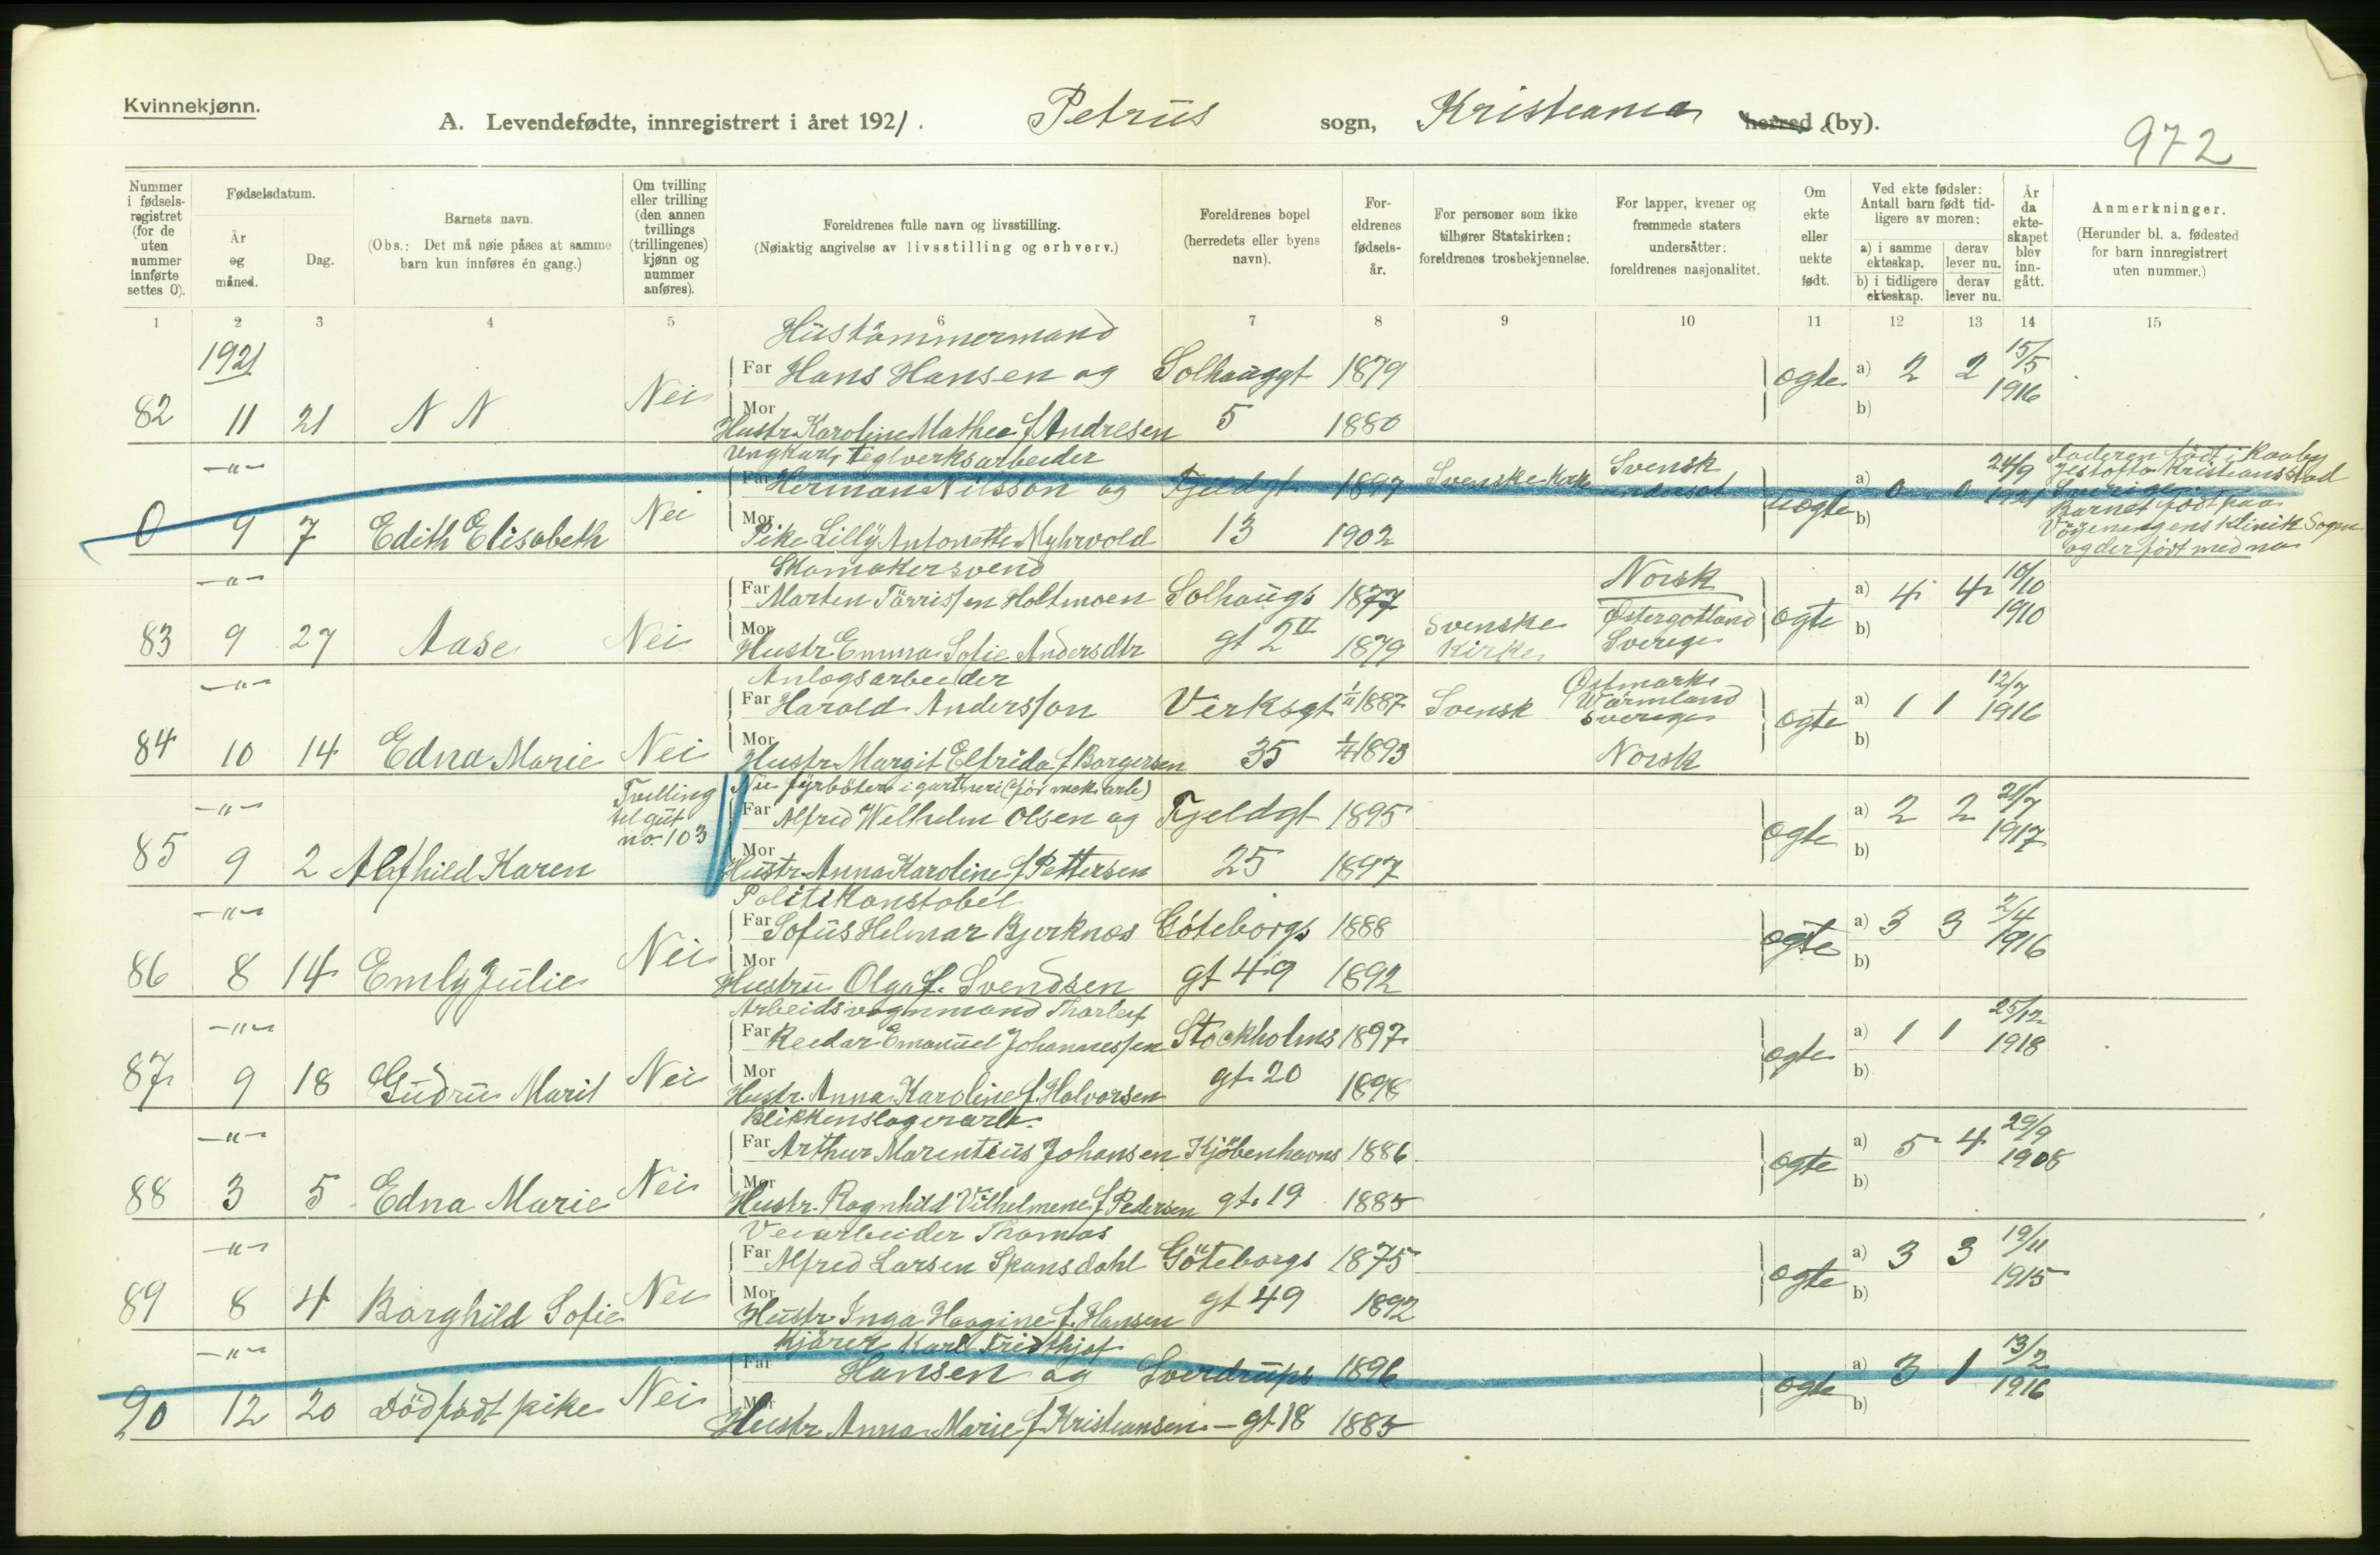 Kvinnekjønn.
A. Levendefødte, innregistrert i året 1921. Petrus sogn, Kristiania herred (by).
972
Nummer i fødsels-registret (for de uten nummer innførte settes 0).
Fødselsdatum.
År og måned.
Dag.
Barnets navn.
(Obs.: Det må nøie påses at samme barn kun innføres én gang.)
Om tvilling eller trilling (den annen tvillings (trillingenes) kjønn og nummer anføres).
Foreldrenes fulle navn og livsstilling.
(Nøiaktig angivelse av livsstilling og erhverv.)
Foreldrenes bopel (herredets eller byens navn).
For-eldrenes fødsels-år.
For personer som ikke tilhører Statskirken: foreldrenes trosbekjennelse.
For lapper, kvener og fremmede staters undersåtter: foreldrenes nasjonalitet.
Om ekte eller uekte født.
Ved ekte fødsler: Antall barn født tid-ligere av moren:
a) i samme ekteskap. derav lever nu.
b) i tidligere ekteskap. derav lever nu.
År da ekte-skapet blev inn-gått.
Anmerkninger.
(Herunder bl. a. fødested for barn innregistrert uten nummer.)
1 2 3 4 5 6 7 8 9 10 11 12 13 14 15
1921
Hustömmermand
Far Hans Hansen og Solhauggt 1879 ogte a) 2 2 15/5 1916
82 11 21 N N Nei
Mor Hustr Karoline Mathea f Andresen 5 1880 b)
—"— Ungkarl, teglverksarbeider
Far Herman Nilsson og Fjeldgt 1897 Svenske Kirke Svensk undersot uogte a) 0 0 24/9 1921
Faderen født i Kaaby
Jestofta Kristiansstad
Sverige
Barnet født paa
Vöyenengens Klinik Sogn
og der ført med no
0 9 7 Edith Elisabeth Nei
Mor Pike Lilly Antonette Myhrvold 13 1902 b)
—"— Skomakersvend
Far Marten Törrissen Holtmoen Solhaugs 1877 Norsk ogte a) 4 4 10/10 1910
83 9 27 Aase Nei
Mor Hustr Emma Sofie Andersdtr gt 2 II 1879 Svenske Kirke Østergotland Sverige b)
—"— Anlogsarbeider
Far Harald Andersson Verksgt 1/11 1887 Svensk Østmarks Wärmland Sverige ogte a) 1 1 12/7 1916
84 10 14 Edna Marie Nei
Mor Hustr Margit Elfrida f Borgersen 35 1893 Norsk b)
—"— Tvilling til gut no. 103
Nu fyrböter i gartneri (för mek. arb)
Far Alfred Wilhelm Olsen og Fjeldgt 1895 ogte a) 2 2 21/7 1917
85 9 2 Alfhild Karen
Mor Hustr. Anna Karoline f Pettersen 25 1897 b)
—"— Politikonstabel
Far Sofus Helmar Bjerknes Göteborgs 1888 ogte a) 3 3 2/4 1916
86 8 14 Emly Julie Nei
Mor Hustru Olga f. Svendsen gt 49 1892 b)
—"— Arbeidsvognmand Thorleif
Far Reidar Emanuel Johannessen Stockholms 1897 ogte a) 1 1 25/12 1918
87 9 18 Gudrun Marit Nei
Mor Hustr. Anna Karoline f. Halvorsen gt. 20 1898 b)
—"— Blikkenslagerarb.
Far Arthur Marentius Johansen Kjöbenhavns 1886 ogte a) 5 4 29/9 1908
88 3 5 Edna Marie Nei
Mor Hustr. Ragnhild Vilhelmine f Pedersen gt. 19 1885 b)
—"— Veiarbeider Thomas
Far Alfred Larsen Skansdahl Göteborgs 1875 ogte a) 3 3 19/11 1915
89 8 4 Borghild Sofie Nei
Mor Hustr. Inga Haagine f. Hansen gt 49 1892 b)
—"— Kjörer Karl Fridthjof
Far Hansen og Sverdrups 1896 ogte a) 3 1 13/2 1916
90 12 20 Dödfödt pike Nei
Mor Hustr Anna Marie f Kristiansen — gt 18 1885 b)